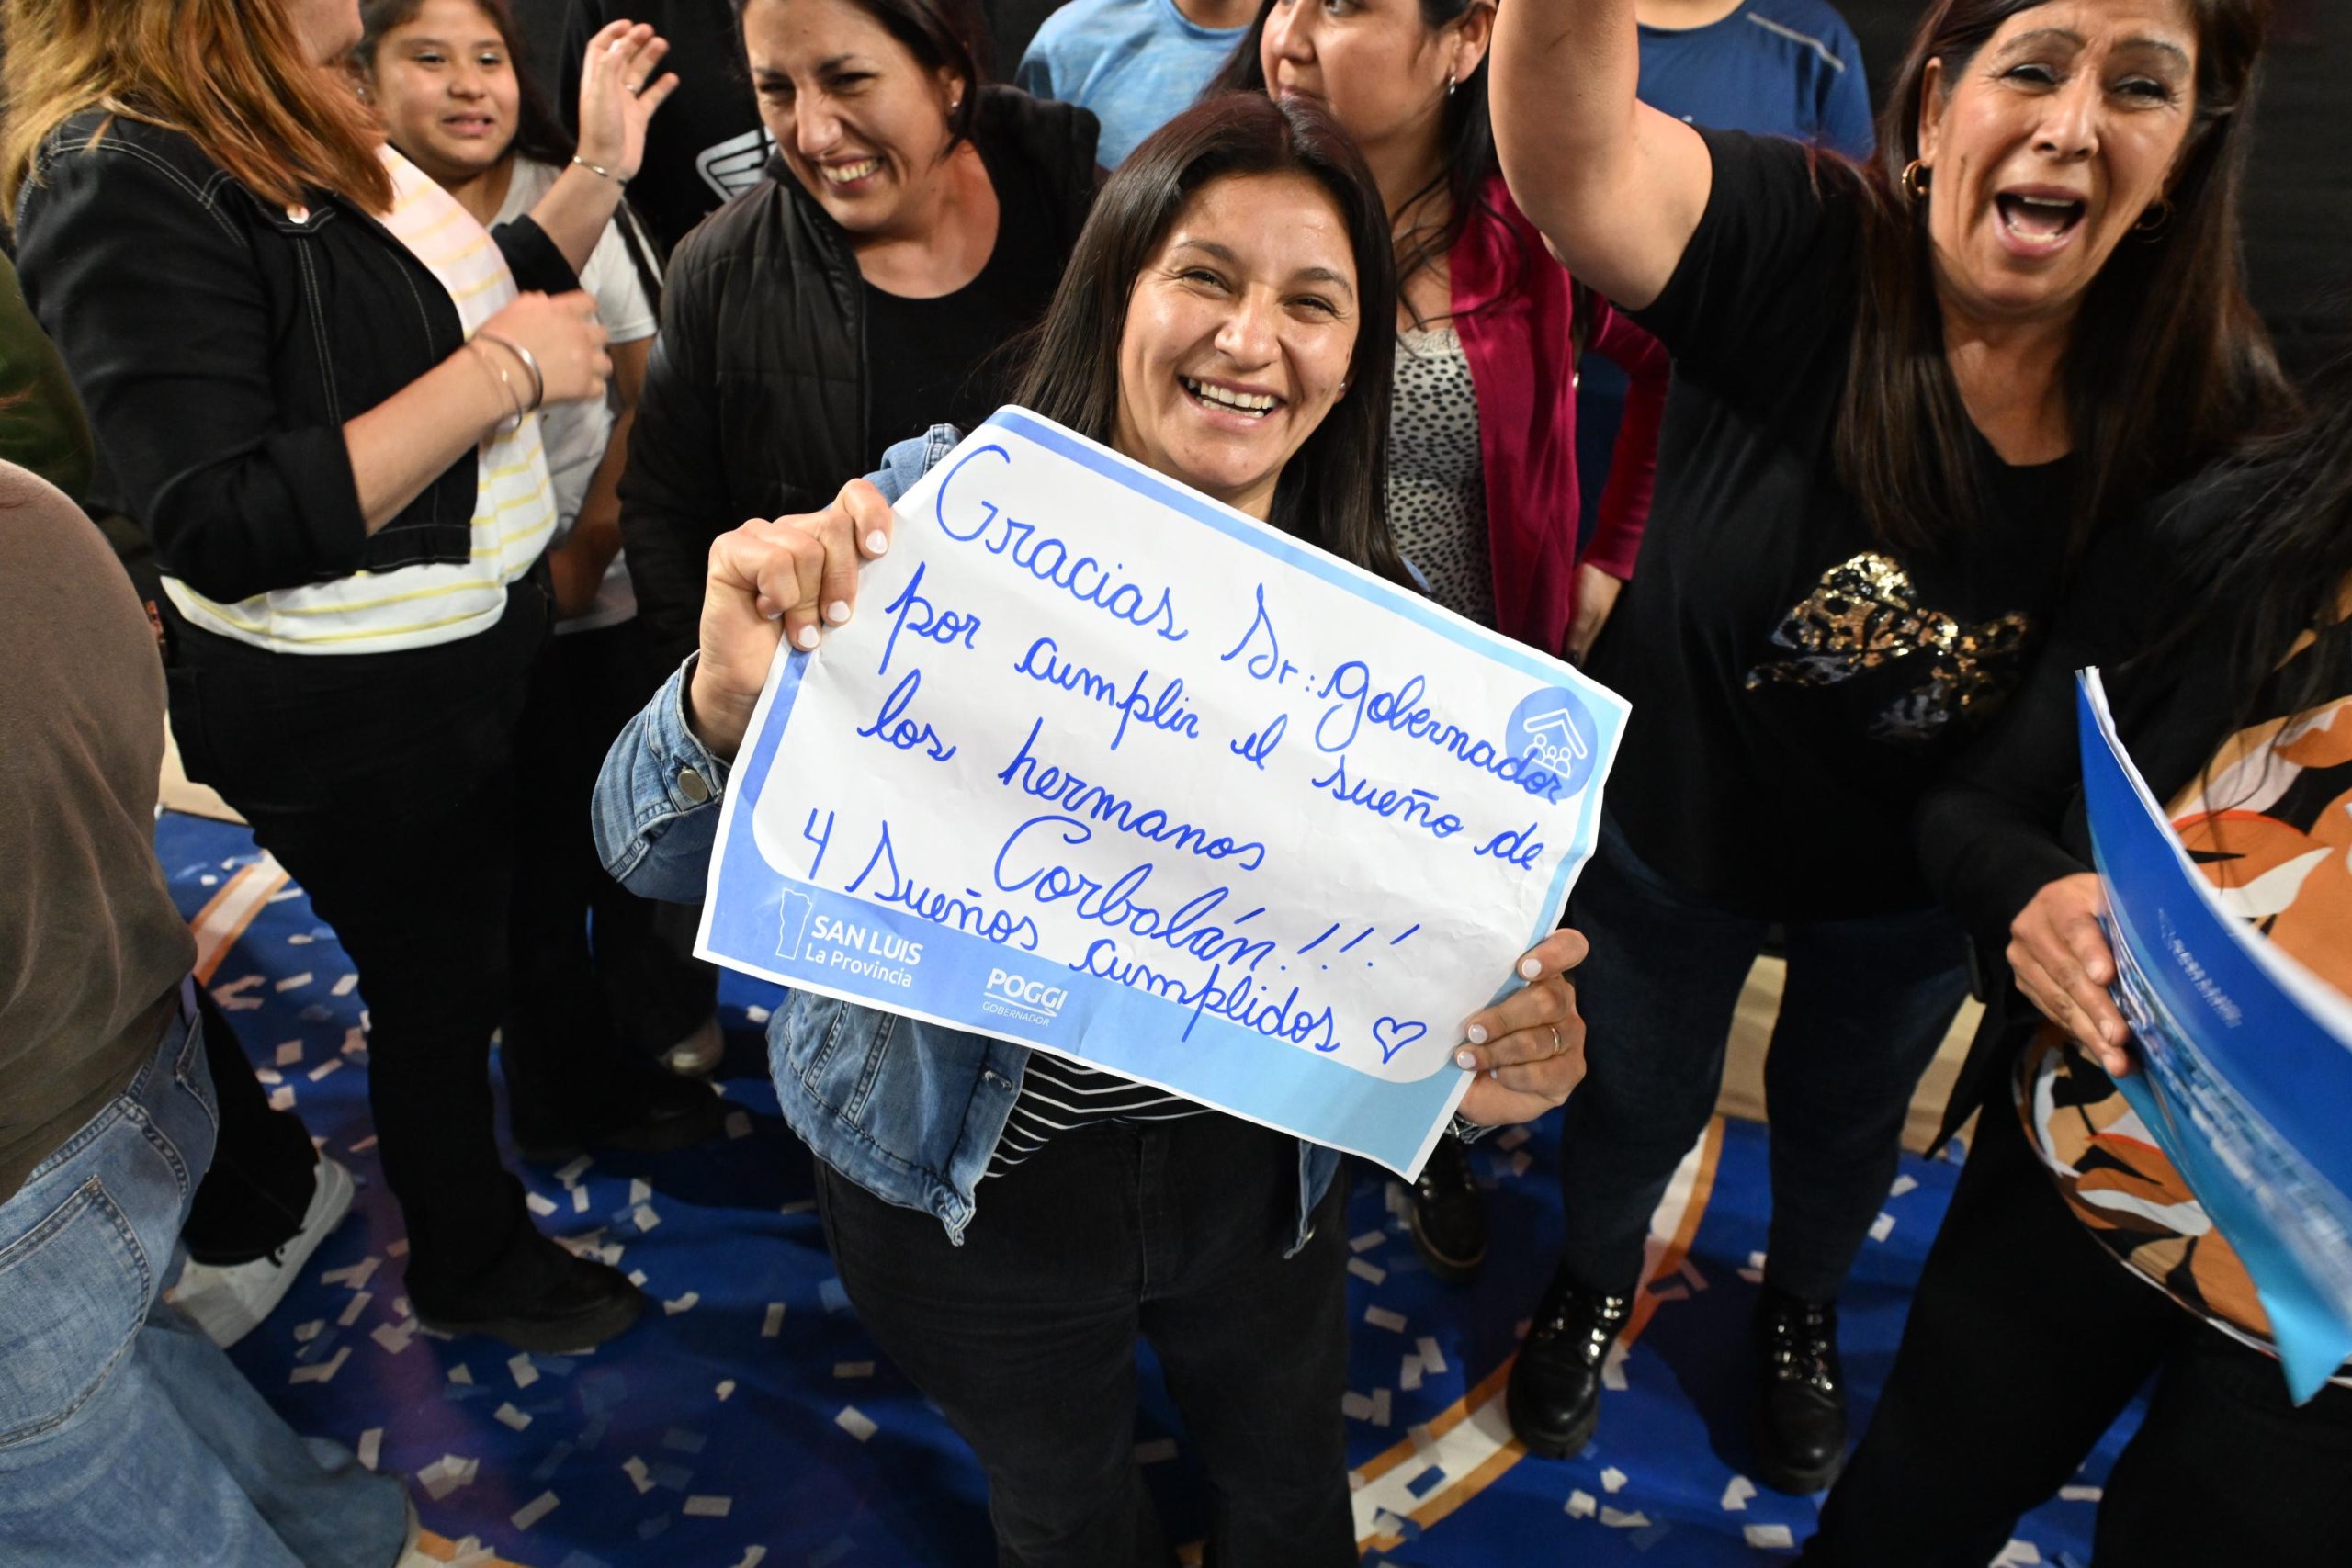 Gracias Sr: gobernador
por cumplir el sueño de
los hermanos
Corbalán!!!
4 Sueños cumplidos
SAN LUIS
La Provincia
POGGI
GOBERNADOR